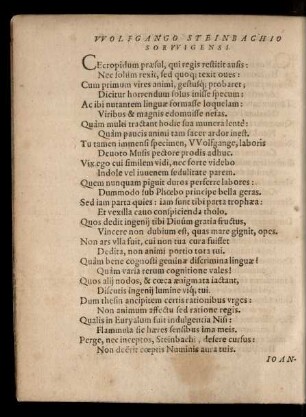 VVOLFGANGO STEINBACHIO
SORVVIGENSI.
CEcropidum præsul, qui regis restitit ausis:
Nec solùm rexit, sed quoq; texit oues:
Cum primum vires animi, gestusq; probaret;
Dicitur horrendum solus inisse specum:
Ac ibi nutantem linguæ formasse loquelam:
Viribus & magnis edomuisse nefas.
Quàm multi tractant hodie sua munera lentè:
Quàm paucis animi tam sacer ardor inest.
Tu tamen immensi specimen, VVolfgange, laboris
Deuoto Musis pectore prodis adhuc.
Vix ego cui similem vidi, nec forte videbo
Indole vel iuuenem sedulitate parem.
Quem nunquam piguit duros perferre labores:
Dummodo sub Phœbo principe bella geras.
Sed iam parta quies: iam sunt tibi parta trophæa:
Et vexilla cauo conspicienda tholo.
Quos dedit ingenij tibi Diuûm gratia fructus,
Vincere non dubium est, quas mare gignit, opes.
Non ars vlla fuit, cui non tua cura fuisset
Dedita, non animi portio tota tui.
Quàm bene cognosti genuina discrimina linguæ!
Quàm varia rerum cognitione vales!
Quos alij nodos, & cœca ænigmata iactant,
Discutis ingenij lumine viq; tui.
Dum thesin ancipitem certis rationibus vrges:
Non animum affectu sed ratione regis.
Qualis in Euryalum fuit indulgentia Nisi:
Flammula sic hæres sensibus ima meis.
Perge, nec inceptos, Steinbachi, desere cursus:
Non deerit cœptis Numinis aura tuis.
IOAN-